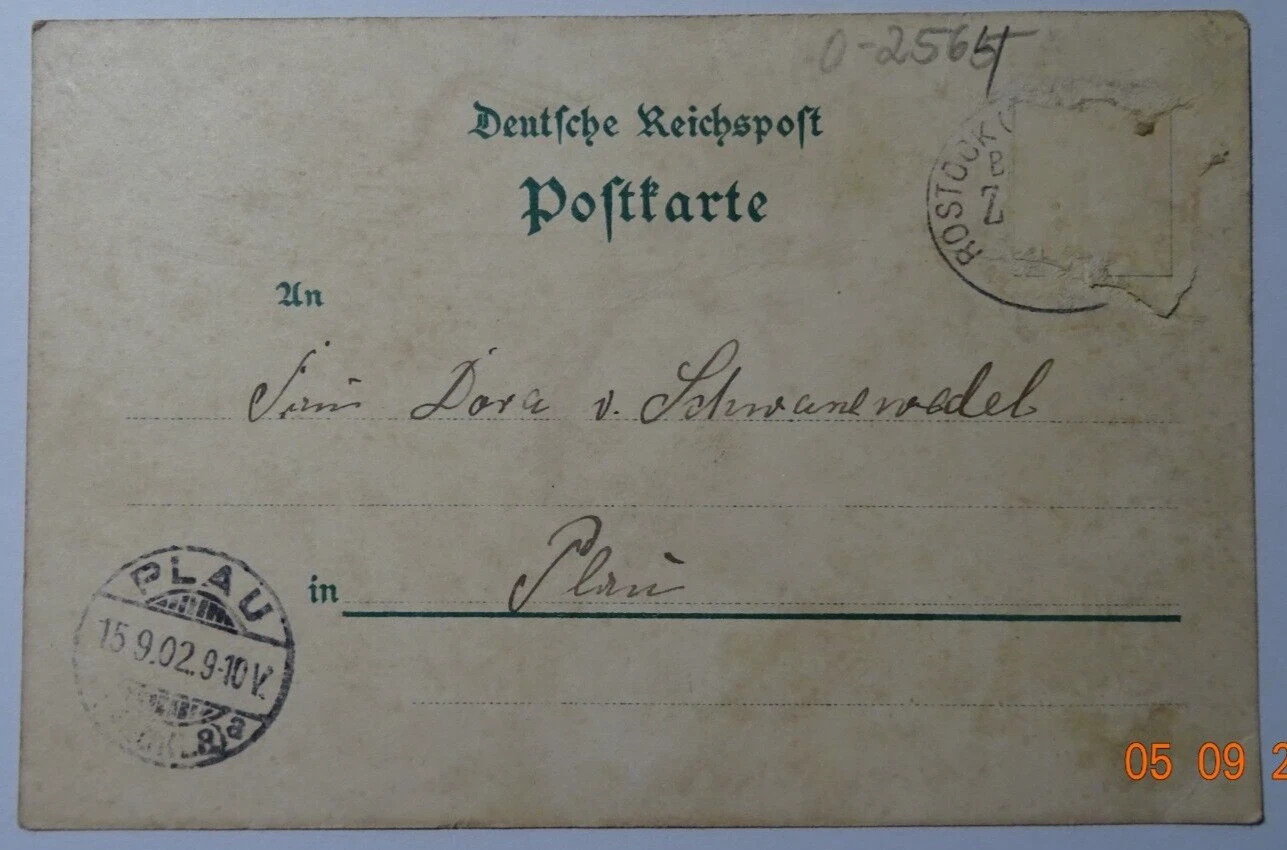 0-2564
Deutsche Reichspost
Postkarte
ROSTOCK
An
Frau Dora v. Schwanewedel
in Plau
PLAU
15.9.02.9-10V.
a
05 09 2